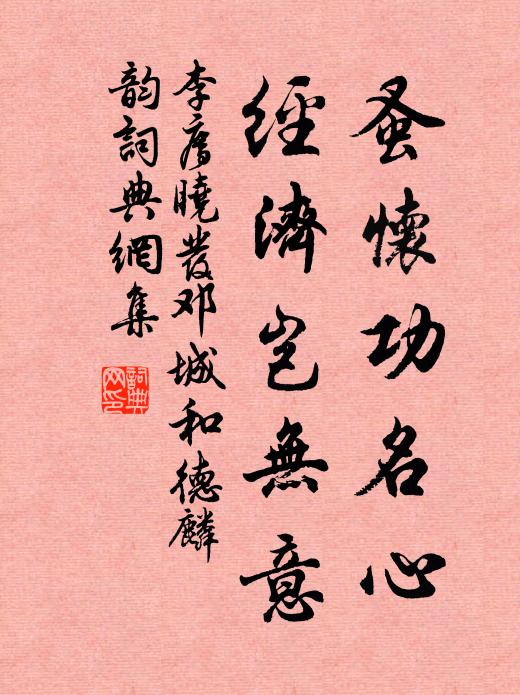 蚤懷功名心
經濟岂無意
李廌曉發邓城和德麟
韵詞典網集
詞典網印